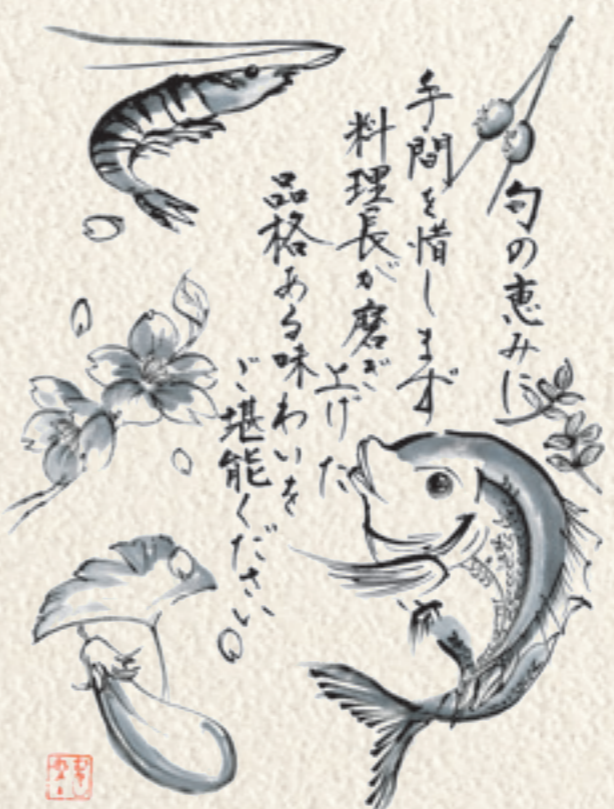 旬の恵みに
手間を惜しまず
料理長が磨ぎ上げた
品格ある味わいを
ご堪能ください。